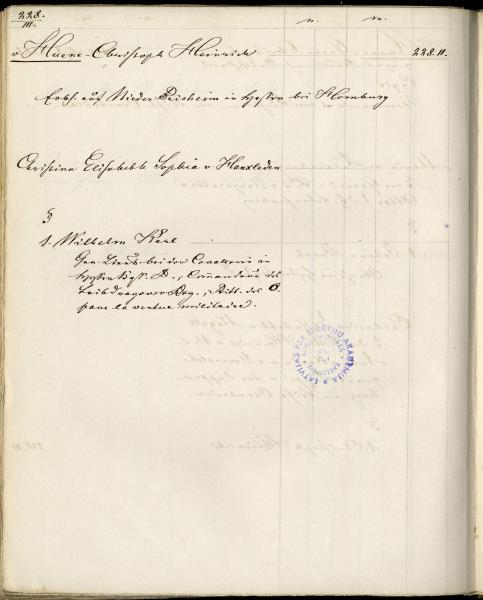 228.
III.
n. m.
v Huene - Christoph Heinrich 228. II.
Erbh. auf Nieder in Hessen bei Homburg
Christina Elisabeth Sophia v. Hanxleden
§
1. Wilhelm Karl
Gen. Lieut. bei der Cavallerie in
Hessen , Commandeur des
Leibdragoner Reg., Ritt. des O.
pour la vertue militaire.
LATVIJAS PSR ZINĀTŅU AKADEMIJA